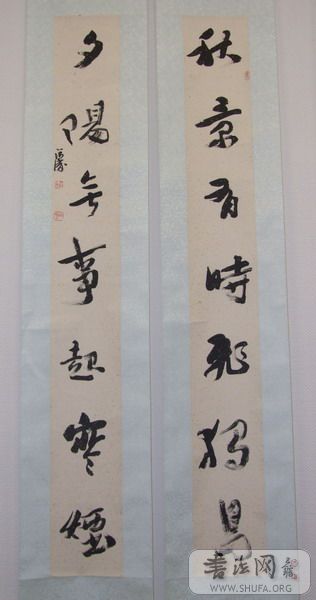 秋景有時飛獨鳥
夕陽無事起寒煙
書法网
WWW.SHUFA.ORG